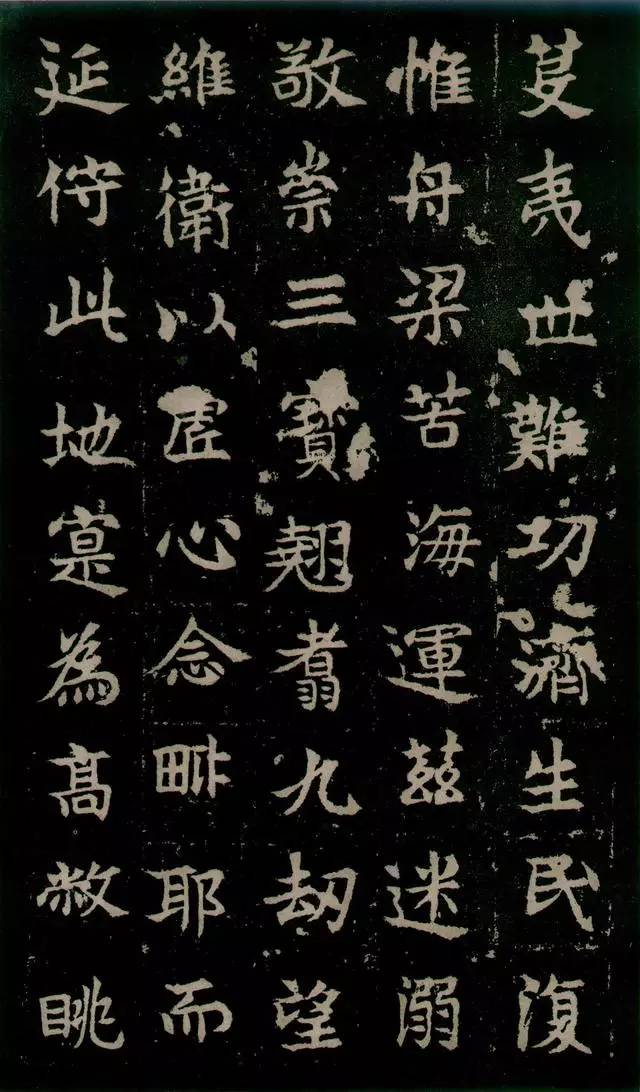 芟夷世難功濟生民復
惟舟梁苦海運茲迷溺
敬崇三寶翹翥九劫望
維衛以虛心念毗耶而
延佇此地寔為高敞眺